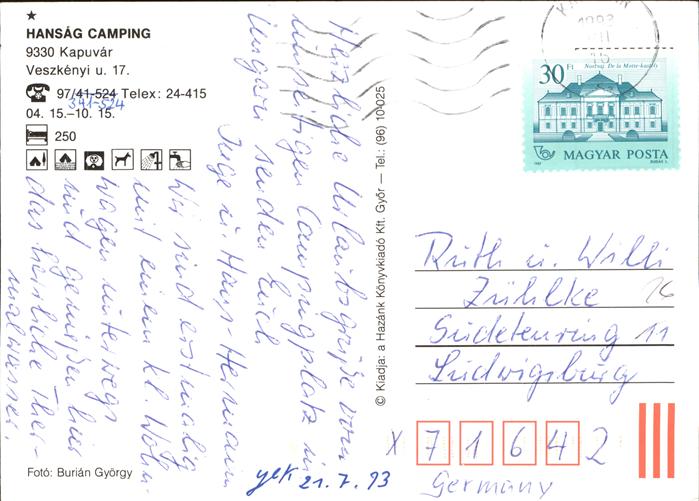 ★
HANSÁG CAMPING
9330 Kapuvár
Veszkényi u. 17.
97/41-524 Telex: 24-415
341-524
04. 15.–10. 15.
250
Herzliche Urlaubsgrüße vom
hiesigen Campingplatz in
Ungarn senden Euch
Inge u. Hans-Hermann
Wir sind erstmalig
mit einem kl. Wohn-
wagen unterwegs
und genießen hier
das herrliche Ther-
malwasser.
21.7.93
Fotó: Burián György
© Kiadja: a Hazánk Könyvkiadó Kft. Győr — Tel.: (96) 10-025
1993
VII
15
Nostray De la Motte-kastély
30 Ft
MAGYAR POSTA
Ruth u. Willi
Zühlke
Sudetenring 11
Ludwigsburg
X 71642
Germany